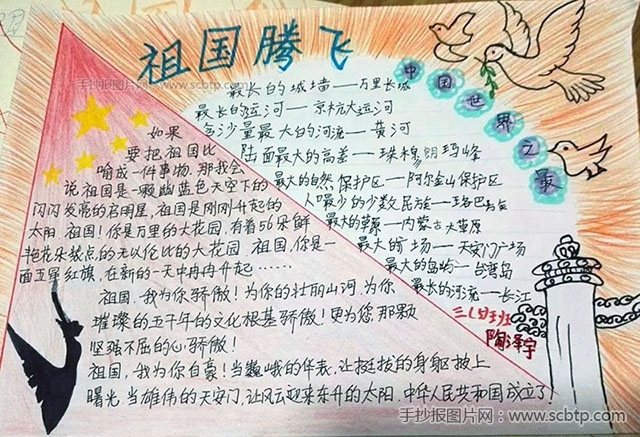 手抄报图片网：www.scbtp.com
祖国腾飞
中国世界之最
最长的城墙——万里长城
最长的运河——京杭大运河
含沙量最大的河流——黄河
陆面最大的高差——珠穆朗玛峰
最大的自然保护区——阿尔金山保护区
人口最少的少数民族——珞巴族
最大的草原——内蒙古大草原
最大的广场——天安门广场
最大的岛屿——台湾岛
最长的河流——长江
三(4)班
陶泽宇
如果
要把祖国比
喻成一件事物，那我会
说祖国是一颗幽蓝色天空下的
闪闪发亮的启明星，祖国是刚刚升起的
太阳，祖国！你是万里的大花园，有着56朵鲜
艳花朵装点的无以伦比的大花园，祖国，你是一
面五星红旗，在新的一天中冉冉升起……
祖国，我为你骄傲！为你的壮丽山河，为你
璀璨的五千年的文化根基骄傲！更为您那颗
坚强不屈的心骄傲！
祖国，我为你自豪！当巍峨的华表，让挺拔的身躯披上
曙光，当雄伟的天安门，让风云迎来东升的太阳，中华人民共和国成立了！
手抄报图片网：www.scbtp.com